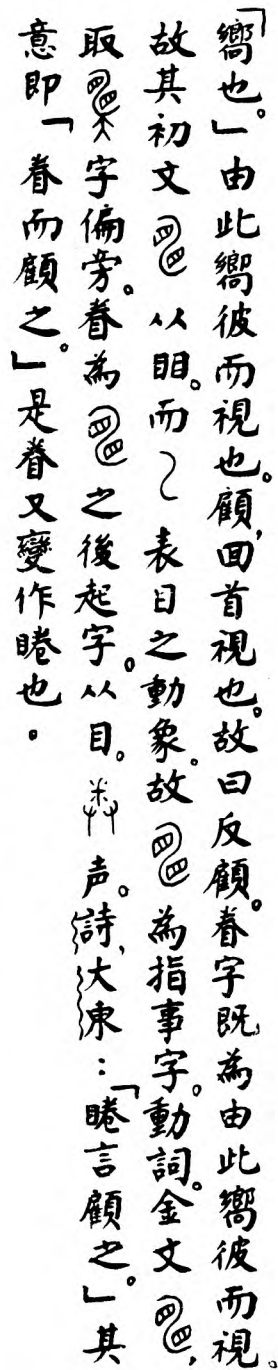 「嚮也。」由此嚮彼而視也。顧，回首視也。故曰反顧。眷字既為由此嚮彼而視。
故其初文 从䀠。而 表目之動象。故 為指事字。動詞。金文 ，
取 字偏旁。眷為 之後起字。从目。 声。詩、大東：「睠言顧之。」其
意即「眷而顧之。」是眷又變作睠也。